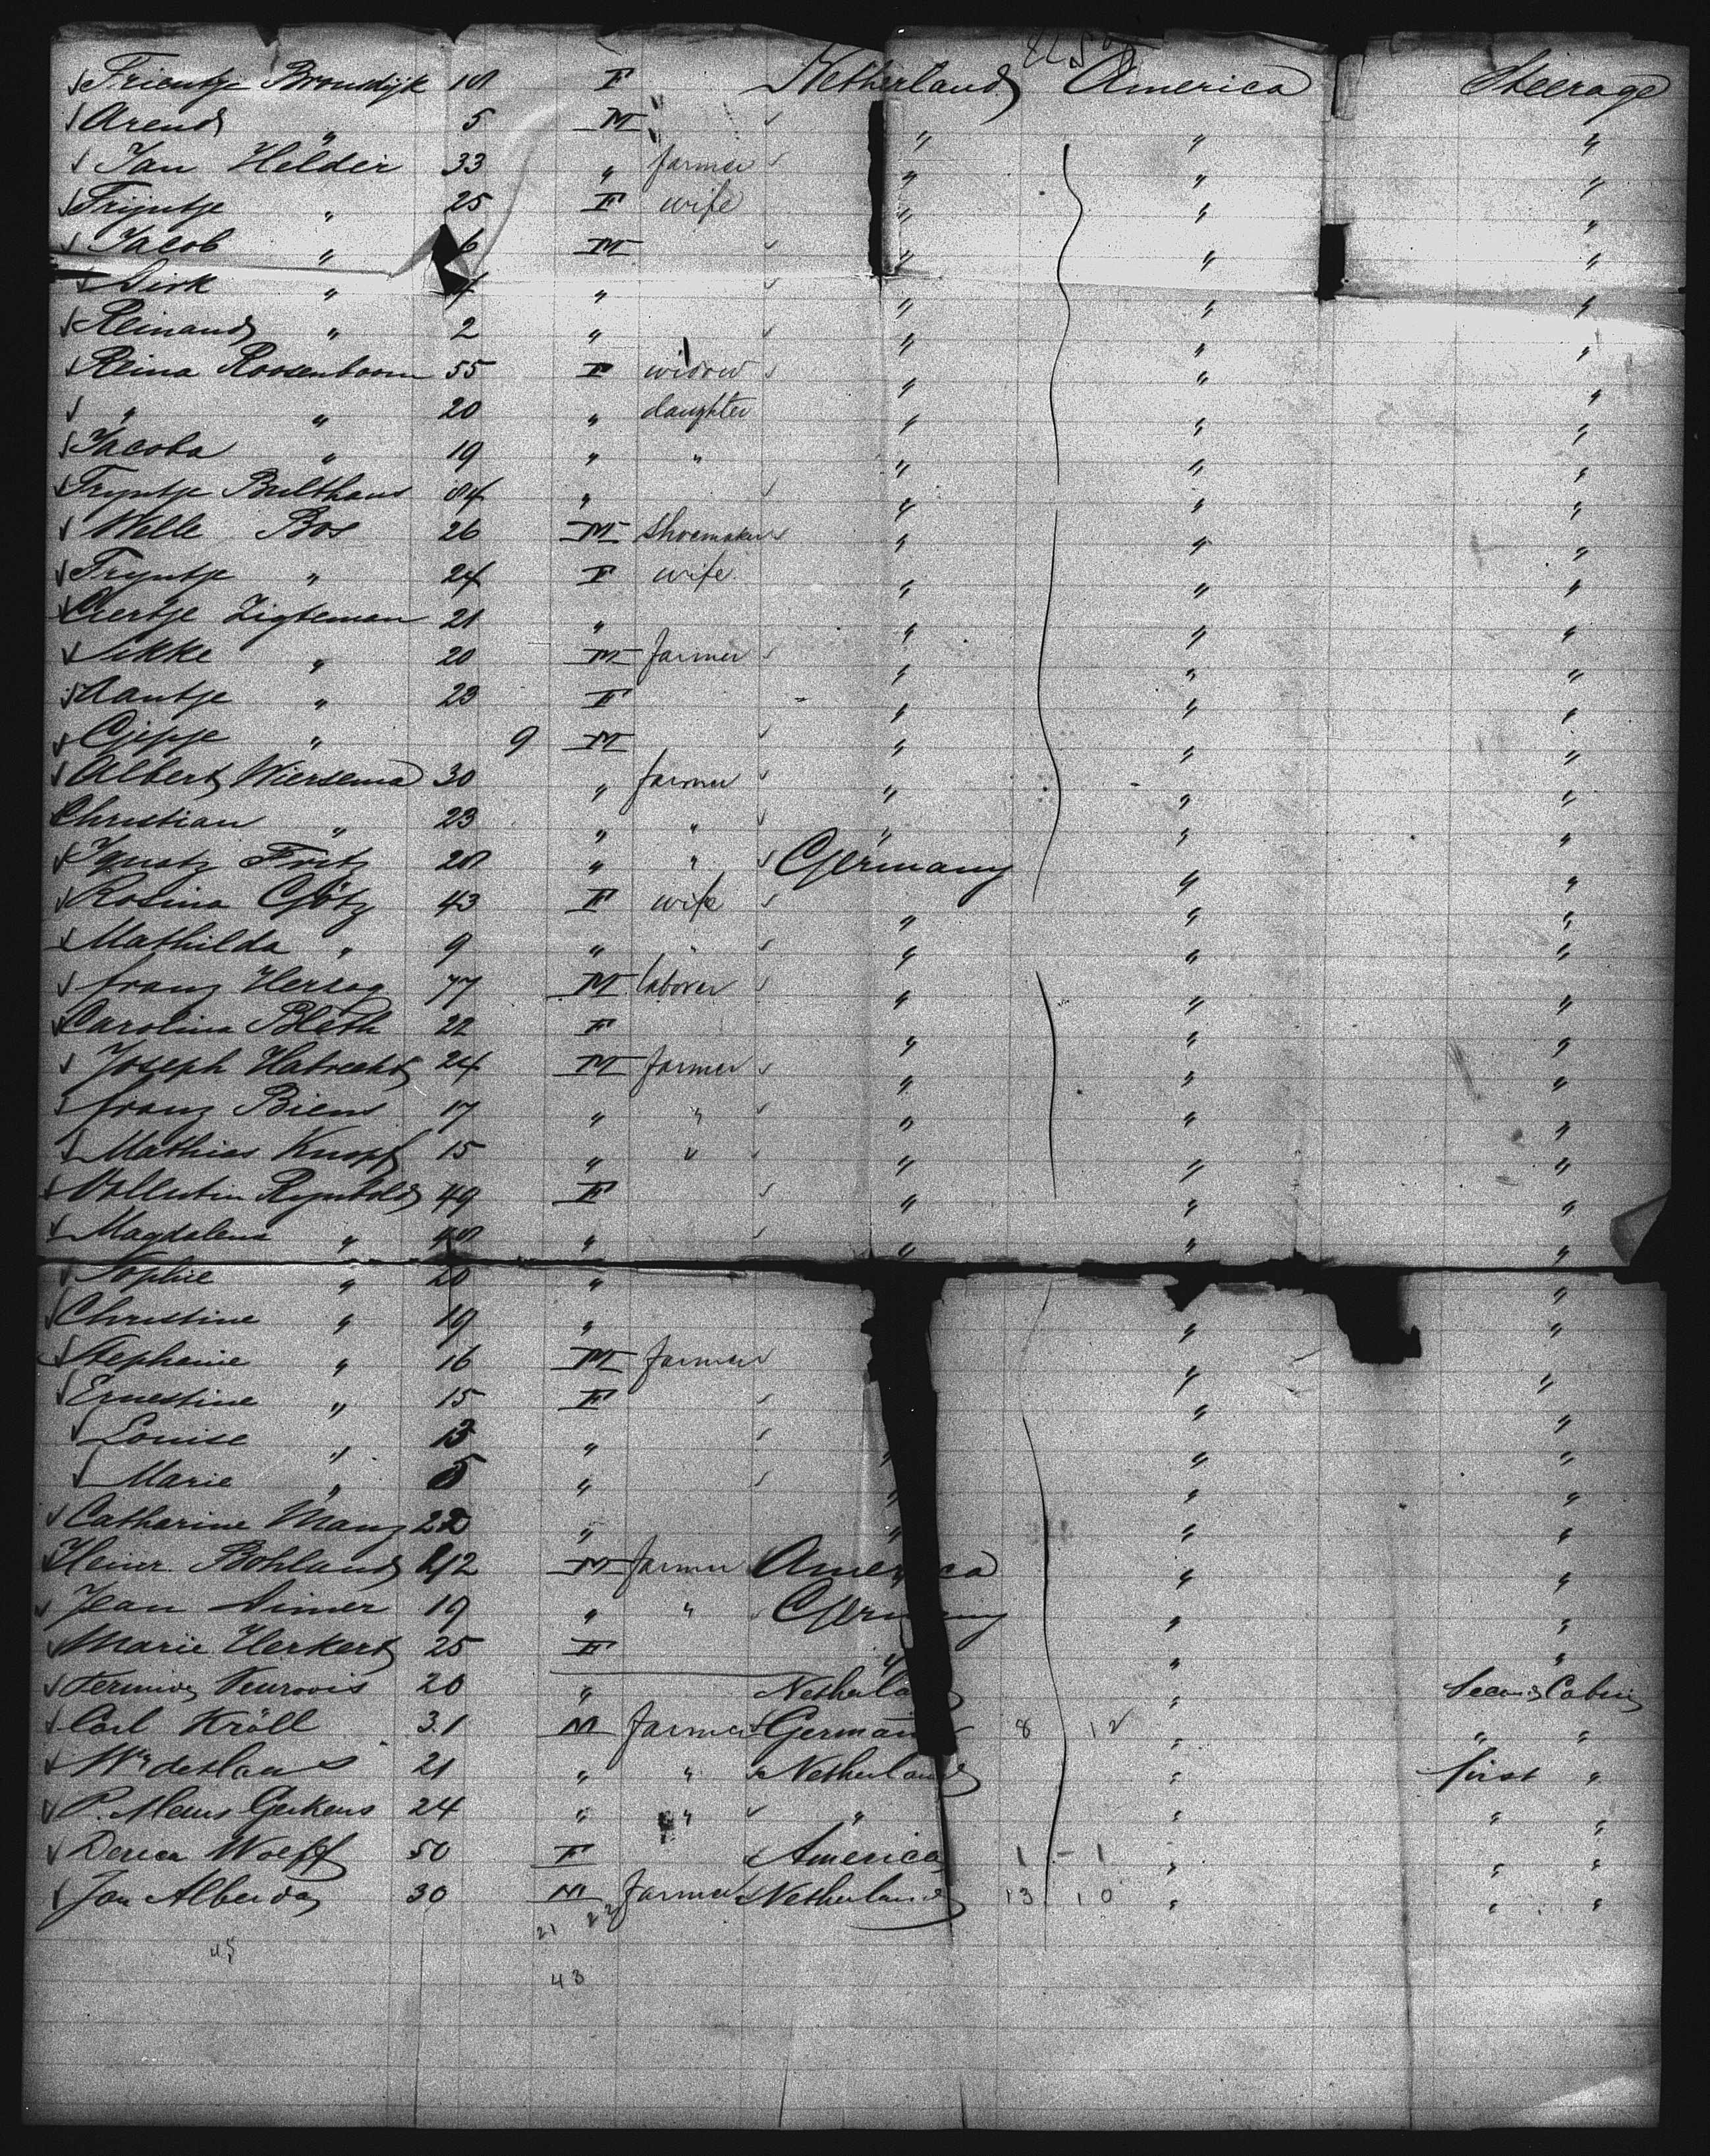 Trientje Brondijk 18 F Netherland America Steerage
Arend " 5 M " " "
Jan Helder 33 " farmer " " "
Trijntje " 25 F wife " " "
Jacob " 6 M " " "
Dirk " 4 " " " "
Reinand " 2 " " " "
Reina Roosenboom 55 F widow " " "
" " 20 " daughter " " "
Jacoba " 19 " " " " "
Tryntje Bulthuis " " " "
Welle Bos 26 M shoemaker " " "
Tryntje " 24 F wife " " "
Aertje Zigteman 21 " " " "
Sikke " 20 M farmer " " "
Aantje " 23 F " " "
" 9 M " " "
Albert Wiersema 30 " farmer " " "
Christian " 23 " " " " "
Ignatz Fritz 28 " " Germany " "
Rosina Götz 43 F wife " " "
Mathilda " 9 " " " " "
franz Herzog 77 M laborer " " "
Carolina Bleth 22 F " " "
Joseph Habrecht 24 M farmer " " "
franz Biens 17 " " " " "
Mathias Knopf 15 " " " " "
Reynbold 49 F " " "
Magdalena " " " " "
Sophie " 20 " "
Christine " 19 " " "
Stephanie " 16 M farmer " "
Ernestine " 15 F " "
Louise " 13 " " " "
Marie " 5 " " " "
Catharine Manz 22 " " " "
Heinr. Bohland 42 M farmer America " "
Jean Aimer 19 " " Germany " "
Marie Herkert 25 F " " "
20 " Netherland " Second Cabin
Carl Kröll 31 M farmer German 8 12 " " "
21 " " Netherland " first "
P. Maus Gerkens 24 " " " " " "
Derica Wolff 50 F America 1 - 1 " " "
Jan Alberda 30 M farmer Netherland 13 10 " " "
21 22
45
43